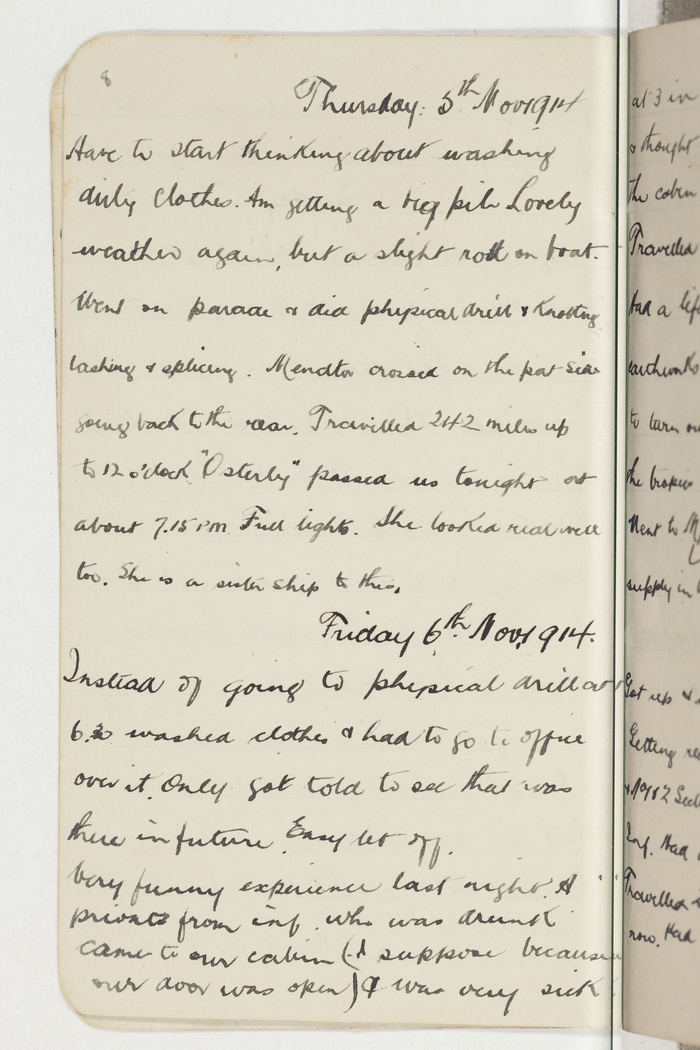 8
Thursday: 5th Nov 1914
Have to start thinking about washing
dirty clothes. Am getting a big pile Lovely
weather again, but a slight roll on boat.
Went on parade & did physical drill & Knotting
lashing & splicing. crossed on the port side
going back to the rear. Travelled 242 miles up
to 12 o'clock "Osterley" passed us tonight at
about 7.15 PM. Full lights. She looked real well
too. She is a sister ship to this.
Friday 6th Nov 1914.
Instead of going to physical drill at
6.30 washed clothes & had to go to office
over it. Only got told to see that was
there in future. Easy let off.
Very funny experience last night. A
private from inf. who was drunk
came to our cabin (I suppose because
our door was open) & was very sick
at 3 in
& thought
the cabin
Travelled
Had a
earthworks
to turn
the
Went to
supply in
Got up &
Getting
Had
Travelled
now. Had